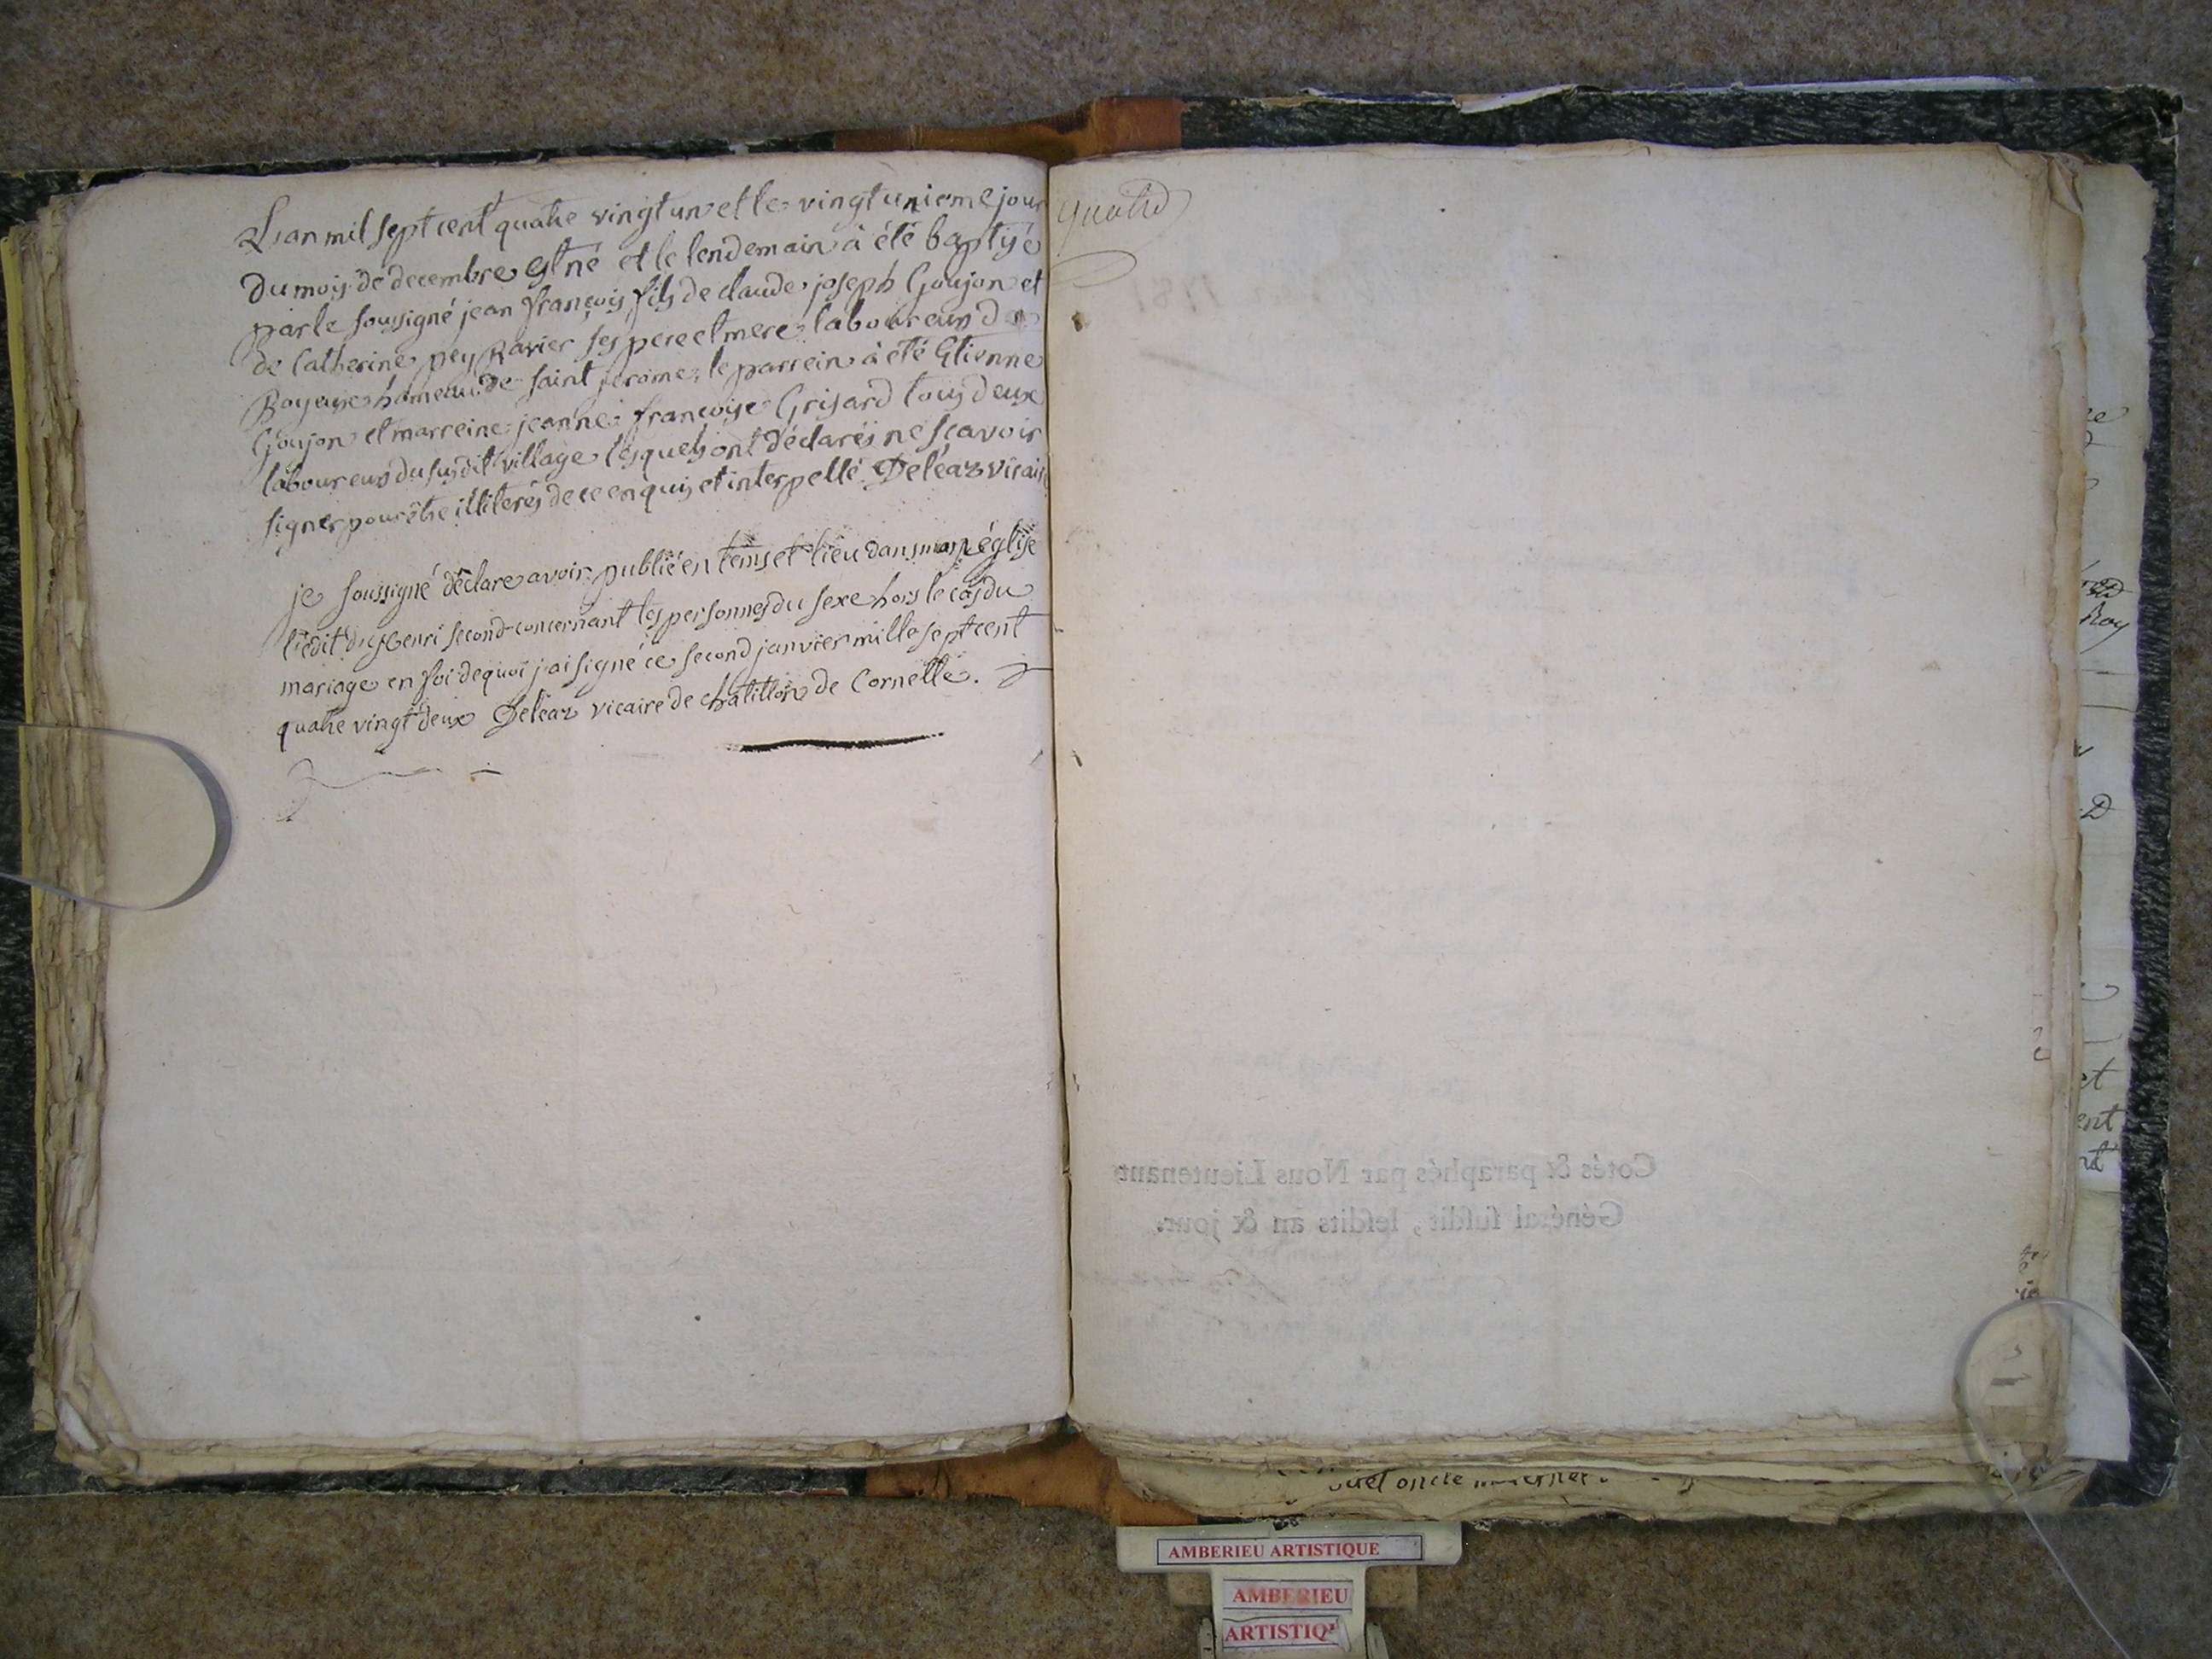 L'an mil sept cent quatre vingt un et le vingt unieme jour
du mois de decembre est né et le lendemain à été baptisé
par le soussigné jean françois fils de claude joseph Goujon et
de Catherine pey Ravier ses pere et mere laboureurs de
Boyeux hameau de saint jerome, le parrein à été Etienne
Goujon et marreine jeanne françoise Grisard tous deux
laboureurs du susdit village lesquels ont déclarés ne sçavoir
signer pour être illiterés de ce enquis et interpellé Deléaz vicair
je soussigné déclare avoir publié en tems et lieu dans mon église
l'édit du Henri second concernant les personnes du sexe hors le cas du
mariage en foi de quoi j'ai signé ce second janvier mille sept cent
quatre vingt deux Deléaz vicaire de chatillon de Cornelle.
quatre
1781
Cotés & paraphés par Nous Lieutenant
Général susdit, lesdits an & jour.
Roy
et
ent
nt
oncle
AMBERIEU ARTISTIQUE
AMBERIEU
ARTISTIQ